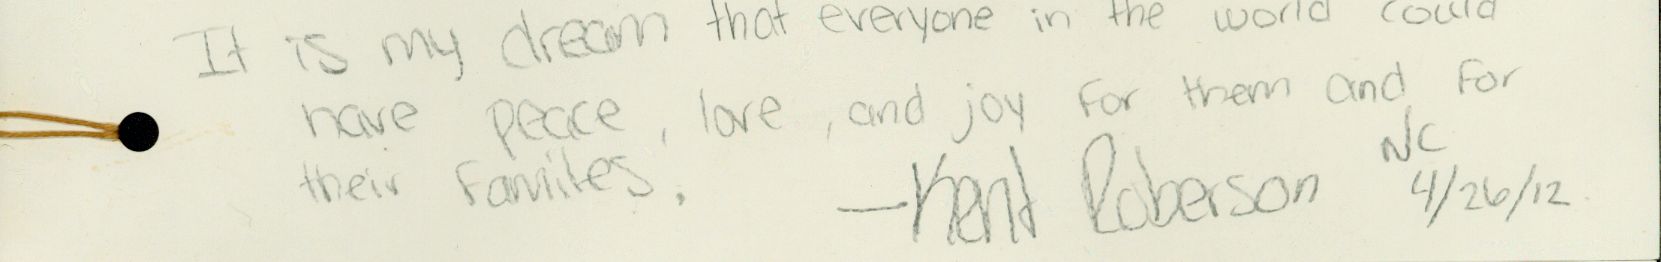 It is my dream that everyone in the world could
have peace, love, and joy for them and for
their familes.
—Kent Roberson NC
4/26/12